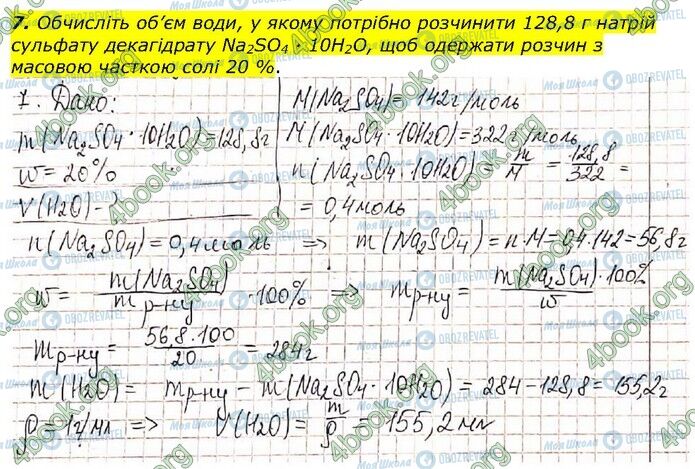 7. Обчисліть об’єм води, у якому потрібно розчинити 128,8 г натрій
сульфату декагідрату Na₂SO₄ · 10H₂O, щоб одержати розчин з
масовою часткою солі 20 %.
7. Дано:
m(Na₂SO₄·10H₂O)=128,8г
w=20%
V(H₂O)-?
M(Na₂SO₄)=142г/моль
M(Na₂SO₄·10H₂O)=322г/моль
n(Na₂SO₄·10H₂O)= m/M = 128,8/322 =
= 0,4моль
n(Na₂SO₄)=0,4моль => m(Na₂SO₄)=n·M=0,4·142=56,8г
w= m(Na₂SO₄)/m р-ну ·100% => m р-ну = m(Na₂SO₄)·100%/w
m р-ну = 56,8·100/20 = 284г
m(H₂O)= m р-ну - m(Na₂SO₄·10H₂O)=284-128,8=155,2г
ρ=1г/мл => V(H₂O)= m/ρ = 155,2мл
4book.org
Моя Школа
OBOZREVATEL